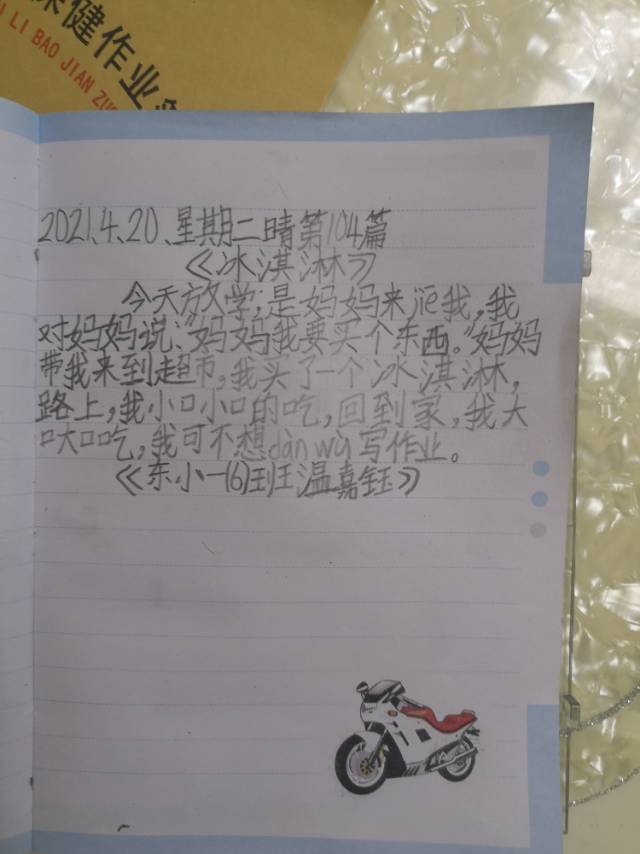 保健作业
LI BAO JIAN ZU
2021.4.20、星期二晴第104篇
《冰淇淋》
今天放学,是妈妈来jie我,我
对妈妈说、“妈妈我要买个东西。”妈妈
带我来到超市,我买了一个冰淇淋,
路上,我小口小口的吃,回到家,我大
口大口吃,我可不想dàn wù写作业。
《东小一(6)班温嘉钰》